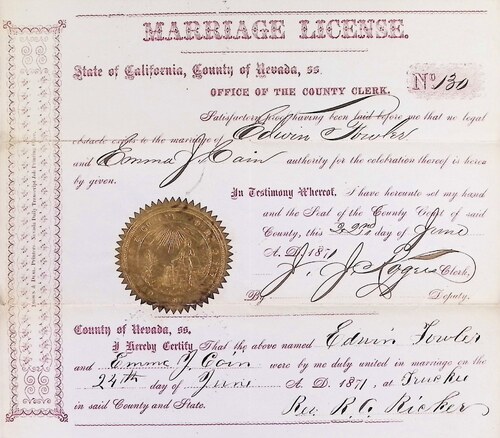 MARRIAGE LICENSE.
State of California, County of Nevada, ss.
No 130
OFFICE OF THE COUNTY CLERK.
Satisfactory proof having been laid before me that no legal
obstacle exists to the marriage of Edwin Fowler
and Emma J. Cain authority for the celebration thereof is hereby
by given.
In Testimony Whereof, I have hereunto set my hand
and the Seal of the County Court of said
County, this 22nd day of June
A. D. 1871
J. J. Clerk,
By Deputy.
County of Nevada, ss.
I Hereby Certify That the above named Edwin Fowler
and Emma J. Cain were by me duly united in marriage on the
24th day of June A. D. 1871, at Truckee
in said County and State.
Rev. R. C. Ricker